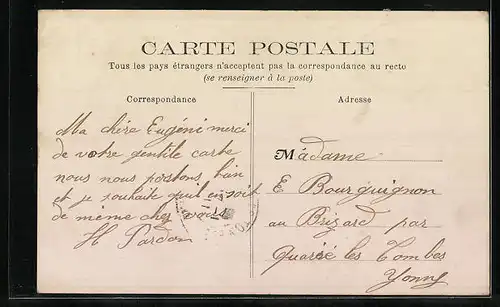 CARTE POSTALE
Tous les pays étrangers n'acceptent pas la correspondance au recto
(se renseigner à la poste)
Correspondance
Adresse
Ma chère Eugéni merci
de votre gentile carte
nous nous portons bien
et je souhaite quil en soit
de même chez vous
H Pardon
Madame
E Bourguignon
au Brizard par
Quarré les Tombes
Yonne